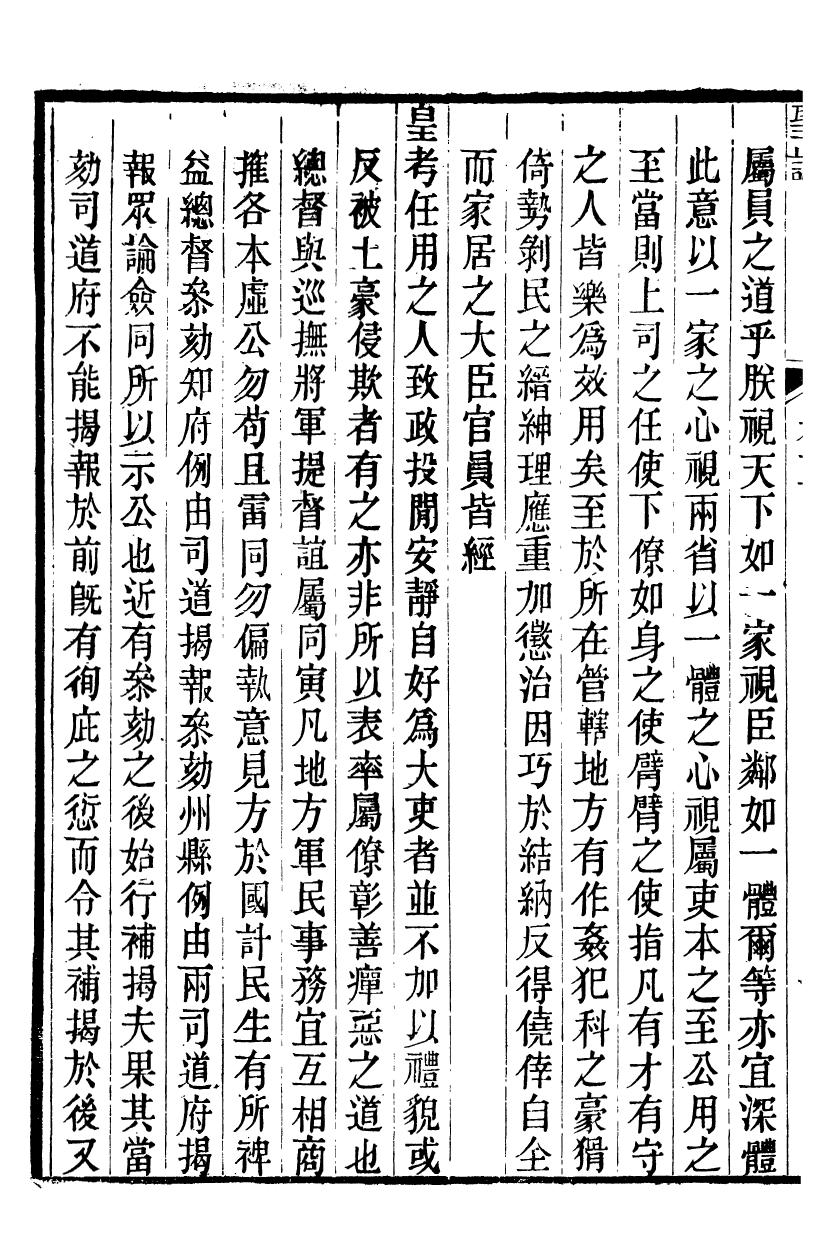 屬員之道乎朕視天下如一家視臣鄰如一體爾等亦宜深體
此意以一家之心視兩省以一體之心視屬吏本之至公用之
至當則上司之任使下僚如身之使臂臂之使指凡有才有守
之人皆樂爲效用矣至於所在管轄地方有作姦犯科之豪猾
倚勢剝民之縉紳理應重加懲治因巧於結納反得僥倖自全
而家居之大臣官員皆經
皇考任用之人致政投閒安靜自好爲大吏者並不加以禮貌或
反被土豪侵欺者有之亦非所以表率屬僚彰善癉惡之道也
總督與巡撫將軍提督誼屬同寅凡地方軍民事務宜互相商
搉各本虛公勿苟且雷同勿偏執意見方於國計民生有所裨
益總督叅劾知府例由司道揭報叅劾州縣例由兩司道府揭
報眾論僉同所以示公也近有叅劾之後始行補揭夫果其當
劾司道府不能揭報於前旣有徇庇之愆而令其補揭於後又